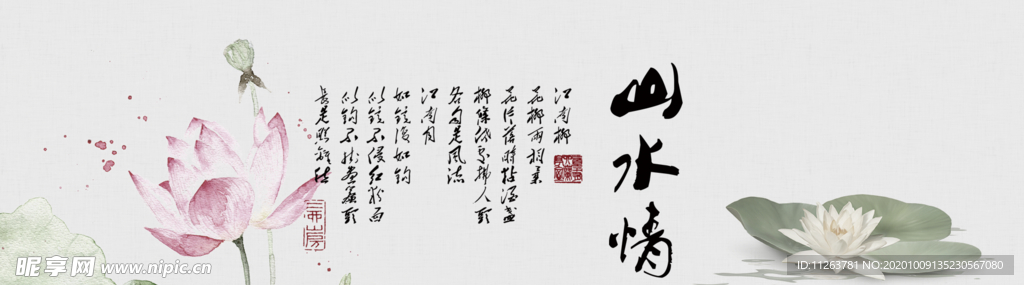 山水情
江南柳
花柳两相柔
花片落时黏酒盏
柳条低处拂人头
各自是风流
江南月
如镜复如钩
似镜不侵红粉面
似钩不挂画帘头
长是照离愁
昵享网 www.nipic.cn
ID:11263781 NO:20201009135230567080